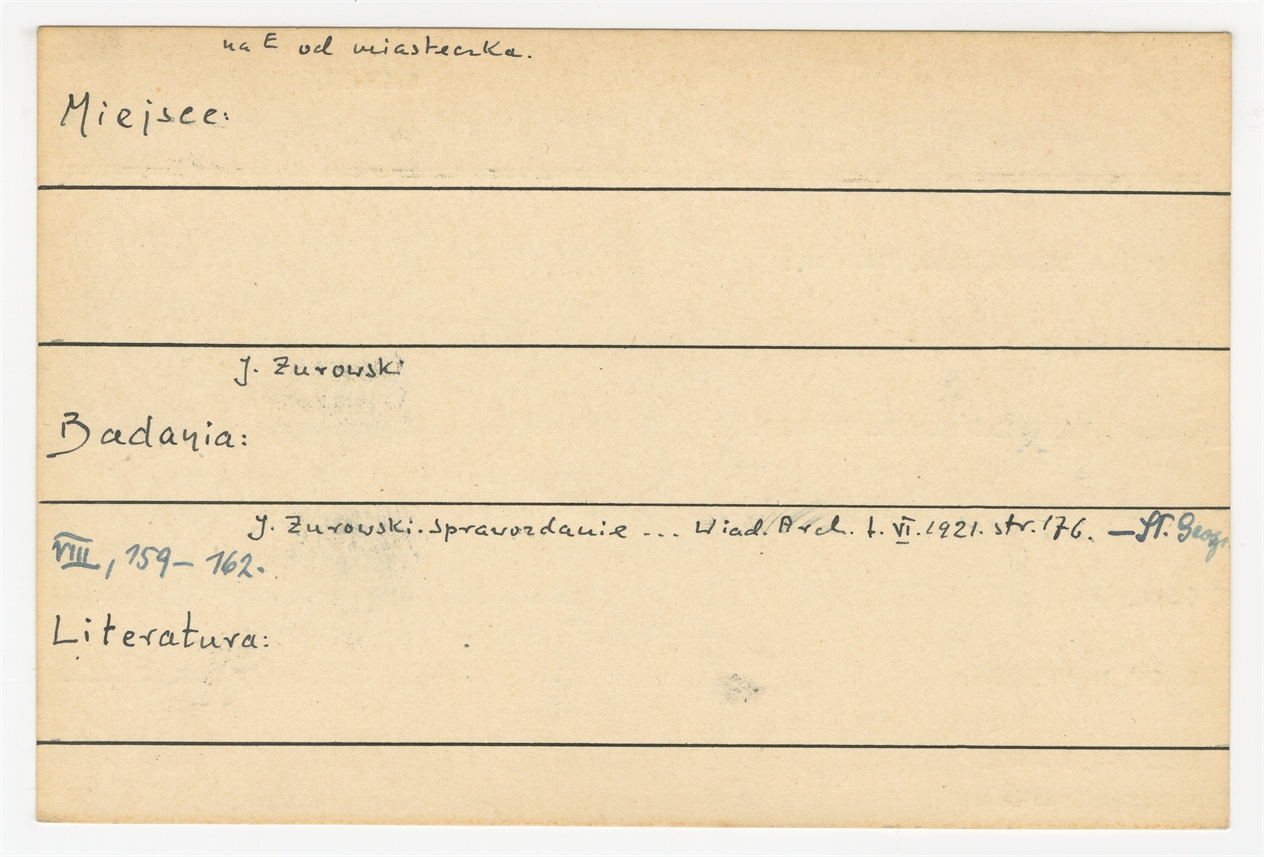 na E od miasteczka.
Miejsce:
J. Żurowski
Badania:
J. Żurowski. Sprawozdanie ... Wiad. Arch. t. VI. 1921. str. 176. — Sł. Geogr.
VIII, 159 – 162.
Literatura: